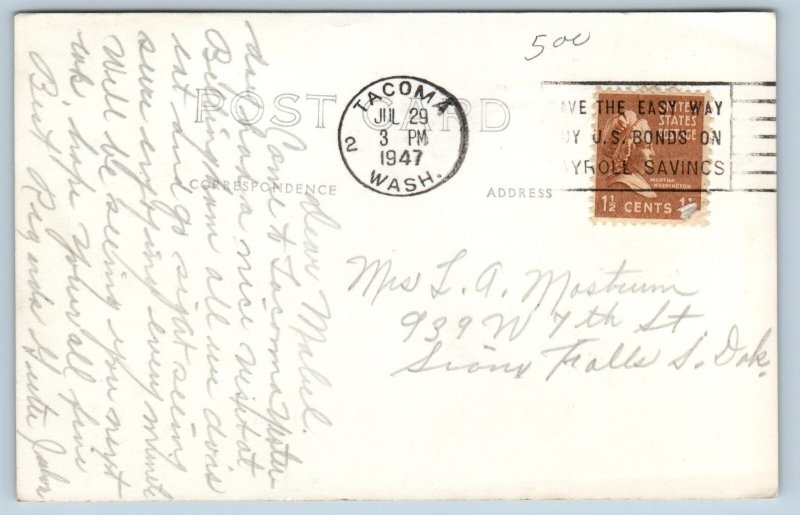 500
POST CARD
TACOMA
JUL 29
3 PM
1947
2
WASH.
SAVE THE EASY WAY
BUY U.S. BONDS ON
PAYROLL SAVINGS
UNITED
STATES
POSTAGE
MARTHA
WASHINGTON
1½ CENTS 1½
CORRESPONDENCE
ADDRESS
Dear Mabel.
Come to Tacoma yester
day had a nice visit at
Bellingham all we do is
eat and go sight seeing
sure enjoying every minute
Will be seeing you next
wk, hope your all fine
Best Regards John
Mrs L. A. Mostrum
939 W 7th St
Sioux Falls S. Dak.